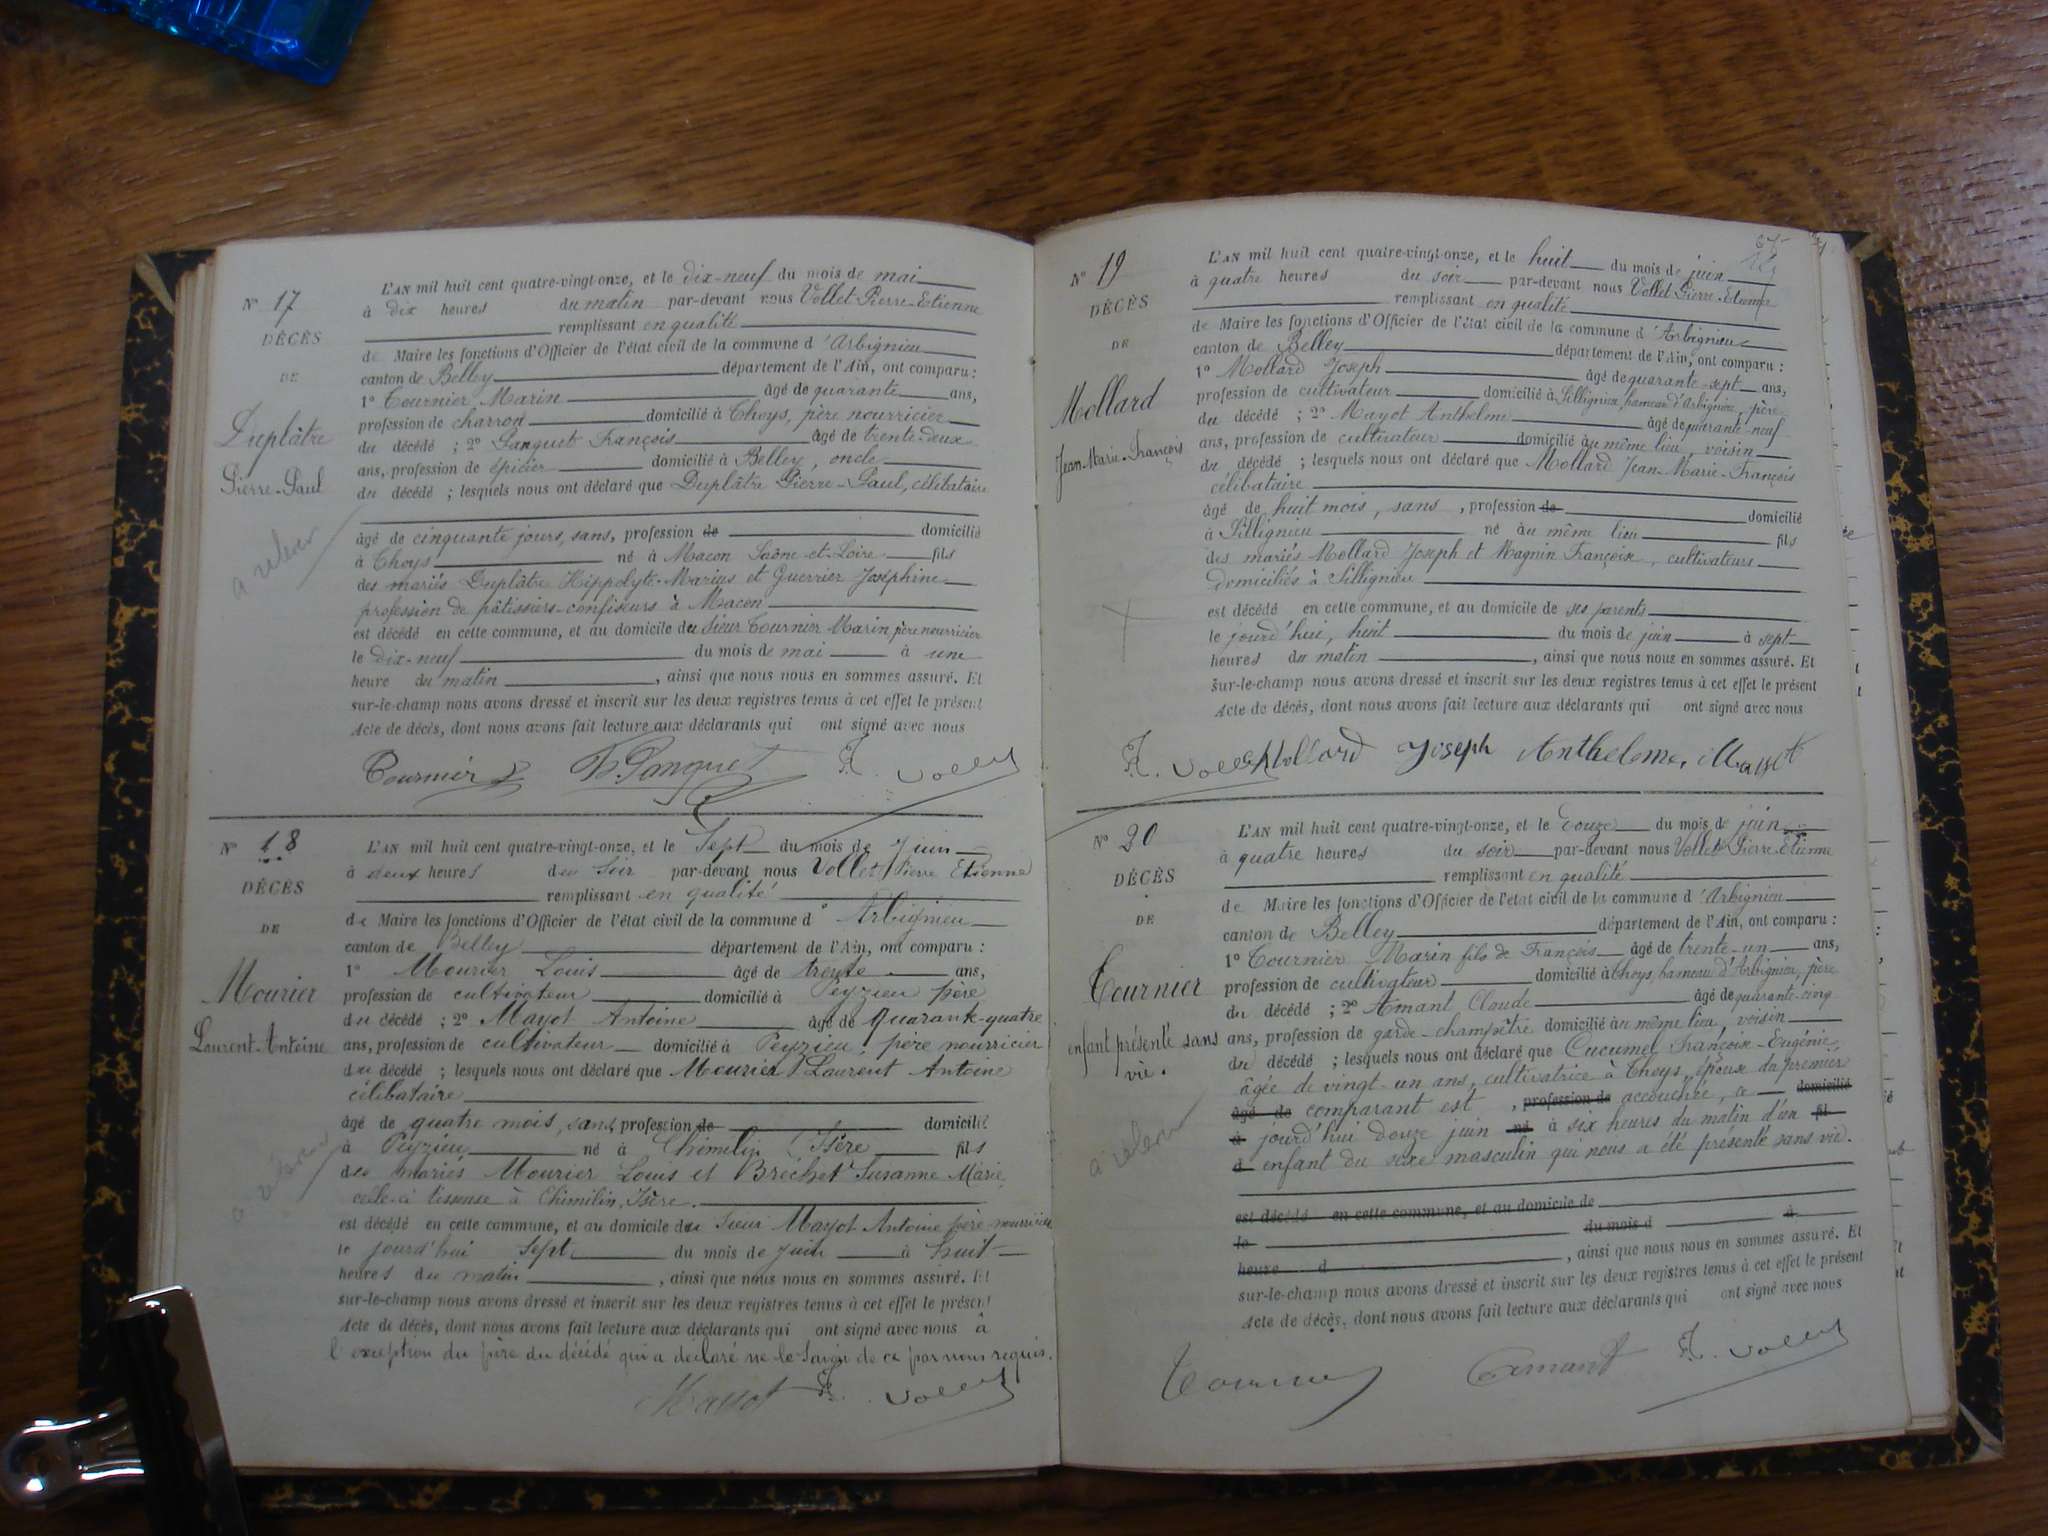 N° 17
DÉCÈS
DE
Duplâtre
Pierre-Paul
a relever
L'AN mil huit cent quatre-vingt-onze, et le dix-neuf du mois de mai
à dix heures du matin par-devant nous Vollet Pierre-Etienne
remplissant en qualité
de Maire les fonctions d'Officier de l'état civil de la commune d'Arbignieu
canton de Belley département de l'Ain, ont comparu :
1° Tournier Marin âgé de quarante ans,
profession de charron domicilié à Thoys, père nourricier
du décédé ; 2° Panquet François âgé de trente-deux
ans, profession de épicier domicilié à Belley, oncle
du décédé ; lesquels nous ont déclaré que Duplâtre Pierre-Paul, célibataire
âgé de cinquante jours, sans, profession de domicilié
à Thoys né à Macon Saône-et-Loire fils
des mariés Duplâtre Hippolyte-Marius et Guerrier Joséphine
profession de pâtissiers-confiseurs à Macon
est décédé en cette commune, et au domicile du sieur Tournier Marin père nourricier
le dix-neuf du mois de mai à une
heure du matin , ainsi que nous nous en sommes assuré. Et
sur-le-champ nous avons dressé et inscrit sur les deux registres tenus à cet effet le présent
Acte de décès, dont nous avons fait lecture aux déclarants qui ont signé avec nous
Tournier Panquet Vollet
N° 18
DÉCÈS
DE
Mourier
Laurent-Antoine
a relever
L'AN mil huit cent quatre-vingt-onze, et le Sept du mois de Juin
à deux heures du Soir par-devant nous Vollet Pierre Etienne
remplissant en qualité
de Maire les fonctions d'Officier de l'état civil de la commune d' Arbignieu
canton de Belley département de l'Ain, ont comparu :
1° Mourier Louis âgé de trente ans,
profession de cultivateur domicilié à Peyzieu père
du décédé ; 2° Mayot Antoine âgé de Quarante-quatre
ans, profession de cultivateur domicilié à Peyzieu, père nourricier
du décédé ; lesquels nous ont déclaré que Mourier Laurent Antoine
célibataire
âgé de quatre mois, sans, profession de domicilié
à Peyzieu né à Chimilin (Isère fils
des mariés Mourier Louis et Brechet Susanne Marie,
celle-ci tisseuse à Chimilin, Isère.
est décédé en cette commune, et au domicile du Sieur Mayot Antoine père nourricier
le jourd'hui Sept du mois de Juin à huit
heures du matin , ainsi que nous nous en sommes assuré. Et
sur-le-champ nous avons dressé et inscrit sur les deux registres tenus à cet effet le présent
Acte de décès, dont nous avons fait lecture aux déclarants qui ont signé avec nous à
l'exception du père du décédé qui a déclaré ne le Savoir de ce par nous requis.
Mayot Vollet
N° 19
DÉCÈS
DE
Mollard
Jean-Marie-François
L'AN mil huit cent quatre-vingt-onze, et le huit du mois de juin
à quatre heures du soir par-devant nous Vollet Pierre-Etienne
remplissant en qualité
de Maire les fonctions d'Officier de l'état civil de la commune d'Arbignieu
canton de Belley département de l'Ain, ont comparu :
1° Mollard Joseph âgé de quarante-sept ans,
profession de cultivateur domicilié à Sillignieu, hameau d'Arbignieu, père
du décédé ; 2° Mayot Anthelme âgé de quarante-neuf
ans, profession de cultivateur domicilié au même lieu, voisin
du décédé ; lesquels nous ont déclaré que Mollard Jean-Marie-François
célibataire
âgé de huit mois, sans , profession de domicilié
à Sillignieu né au même lieu fils
des mariés Mollard Joseph et Magnin Françoise, cultivateurs
domiciliés à Sillignieu
est décédé en cette commune, et au domicile de ses parents
le jourd'hui, huit du mois de juin à sept
heures du matin , ainsi que nous nous en sommes assuré. Et
sur-le-champ nous avons dressé et inscrit sur les deux registres tenus à cet effet le présent
Acte de décès, dont nous avons fait lecture aux déclarants qui ont signé avec nous
Vollet Mollard Joseph Anthelme, Mayot
N° 20
DÉCÈS
DE
Tournier
enfant présenté sans
vie.
a relever
L'AN mil huit cent quatre-vingt-onze, et le douze du mois de juin
à quatre heures du soir par-devant nous Vollet Pierre-Etienne
remplissant en qualité
de Maire les fonctions d'Officier de l'état civil de la commune d'Arbignieu
canton de Belley département de l'Ain, ont comparu :
1° Tournier Marin fils de François âgé de trente-un ans,
profession de cultivateur domicilié à Thoys, hameau d'Arbignieu, père
du décédé ; 2° Amant Claude âgé de quarante-cinq
ans, profession de garde-champêtre domicilié au même lieu, voisin
du décédé ; lesquels nous ont déclaré que Cucumel Françoise-Eugénie,
âgée de vingt-un ans, cultivatrice à Thoys, épouse du premier
âgé de comparant est , profession de accouchée, ce domicilié
à jourd'hui douze juin né à six heures du matin d'un fil
d enfant du sexe masculin qui nous a été présenté sans vie.
est décédé en cette commune, et au domicile de
le du mois d à
heure d , ainsi que nous nous en sommes assuré. Et
sur-le-champ nous avons dressé et inscrit sur les deux registres tenus à cet effet le présent
Acte de décès, dont nous avons fait lecture aux déclarants qui ont signé avec nous
Tournier Amant Vollet